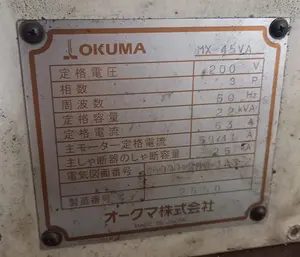 OKUMA MX-45VA
定格電圧 200 V
相数 3 P
周波数 60 Hz
定格容量 22 kVA
定格電流
主モーター定格電流 A
主しゃ断器のしゃ断容量 25 kA
電気図面番号
製造番号
オークマ株式会社
MADE IN JAPAN